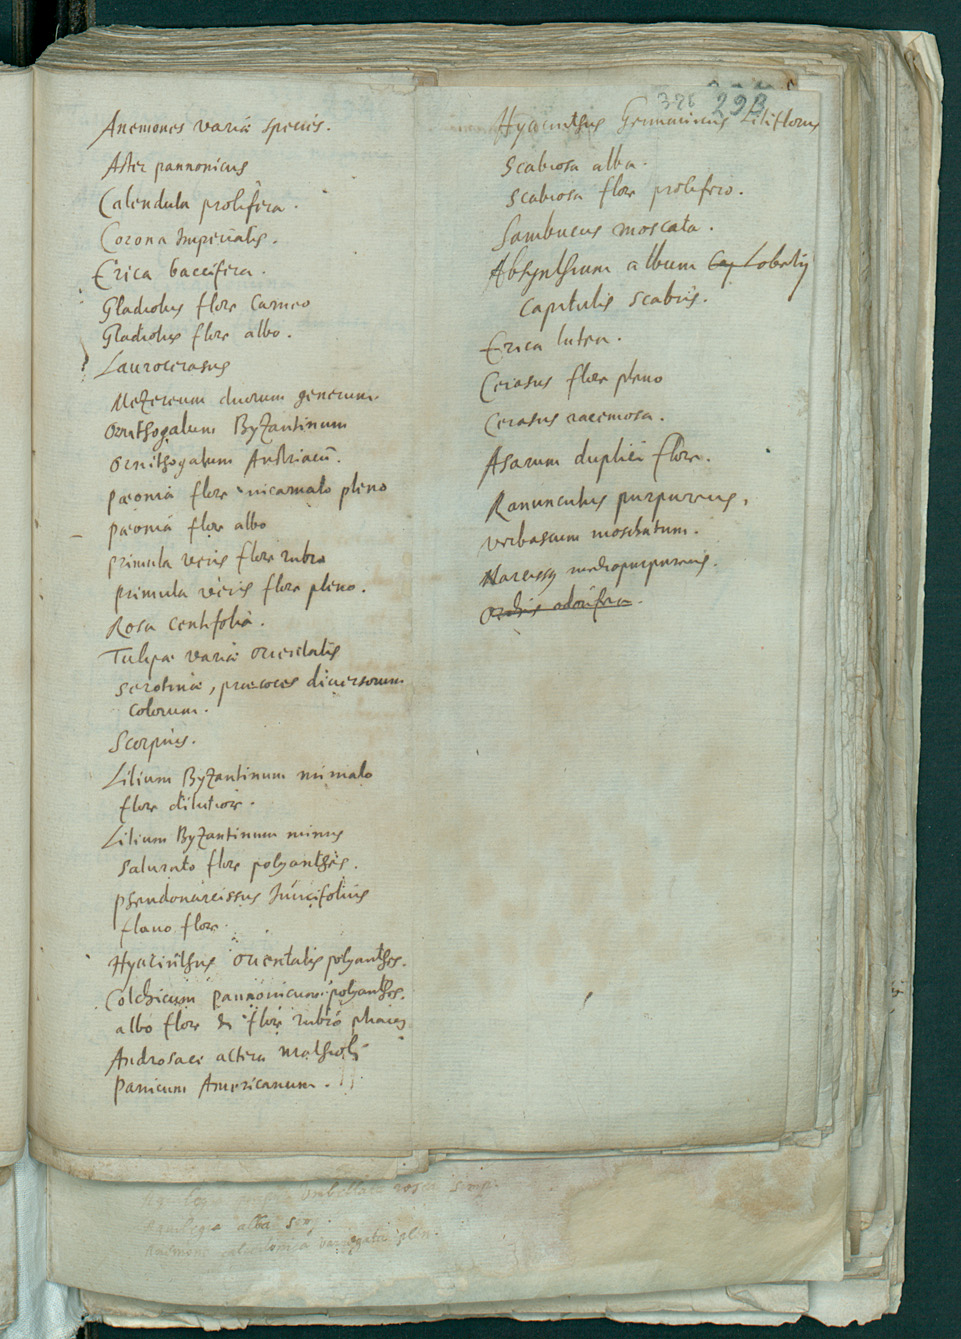 Anemones variæ species.
Aster pannonicus
Calendula prolifera.
Corona Imperialis.
Erica baccifera.
Gladiolus flore carneo
Gladiolus flore albo.
Laurocerasus
Mezereum duorum generum.
Ornithogalum Byzantinum
Ornithogalum Austriacū.
Pæonia flore incarnato pleno
Pæonia flore albo
primula veris flore rubro
primula veris flore pleno.
Rosa centifolia.
Tulipæ variæ orientalis
serotinæ, præcoces diversorum
colorum.
Scorpius.
Lilium Byzantinum miniato
flore dilutiore.
Lilium Byzantinum minus
saturato flore polyanthes.
pseudonarcissus Juncifolius
flavo flore.
Hyacinthus orientalis polyanthes.
Colchicum pannonicum polyanthes.
albo flore & flore rubro
Androsace altera Mathioli
Panicum Americanum.
376 29B
Hyacinthus Germanicus Liliflorus
Scabiosa alba.
Scabiosa flore prolifero.
Sambucus moscata.
Absynthium album Lobelij
capitulis scabris.
Erica lutea.
Cerasus flore pleno
Cerasus racemosa.
Asarum duplici flore.
Ranunculus purpureus,
Verbascum moschatum.
Narcissus mediopurpureus.
Orchis odorifera.
umbellata rosea simp.
Aquilegia alba simp.
Anemone calcedonica variegata plen.